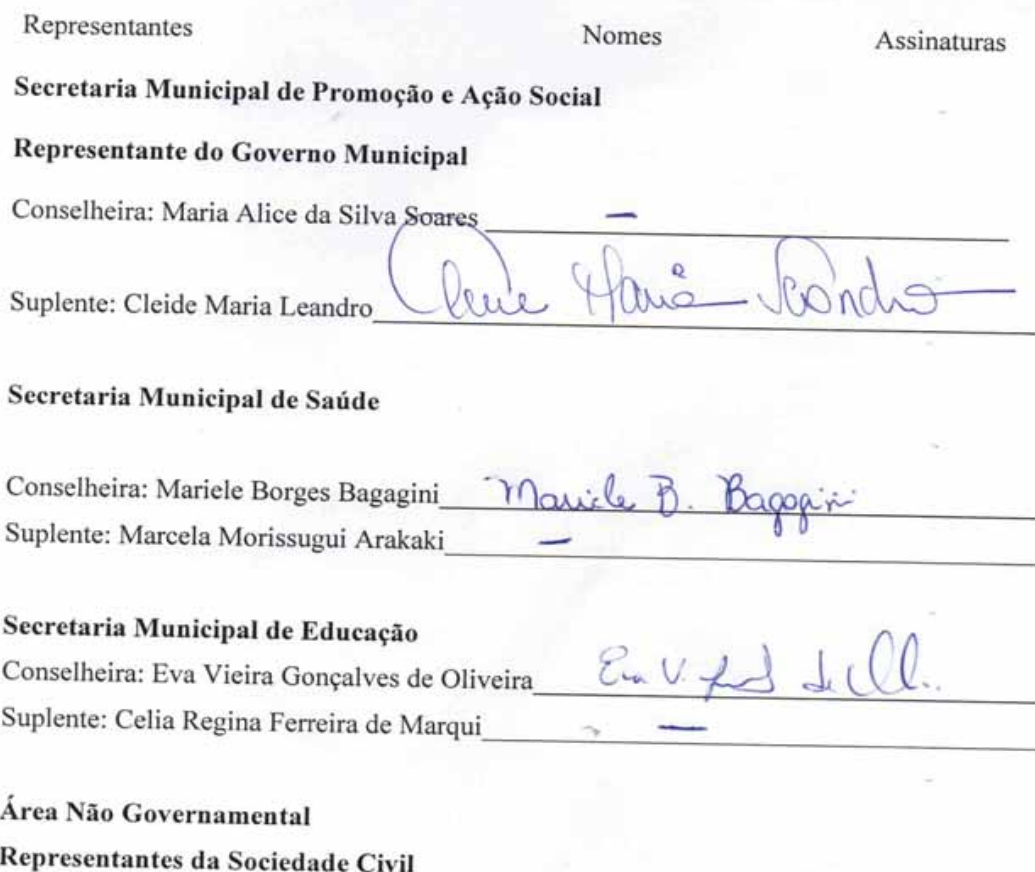 Representantes Nomes Assinaturas
Secretaria Municipal de Promoção e Ação Social
Representante do Governo Municipal
Conselheira: Maria Alice da Silva Soares —
Suplente: Cleide Maria Leandro Cleide Maria Leandro
Secretaria Municipal de Saúde
Conselheira: Mariele Borges Bagagini Mariele B. Bagagini
Suplente: Marcela Morissugui Arakaki —
Secretaria Municipal de Educação
Conselheira: Eva Vieira Gonçalves de Oliveira Eva V.
Suplente: Celia Regina Ferreira de Marqui —
Área Não Governamental
Representantes da Sociedade Civil